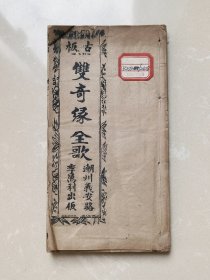 古板
雙奇緣全歌
潮州義安路
李萬利出版